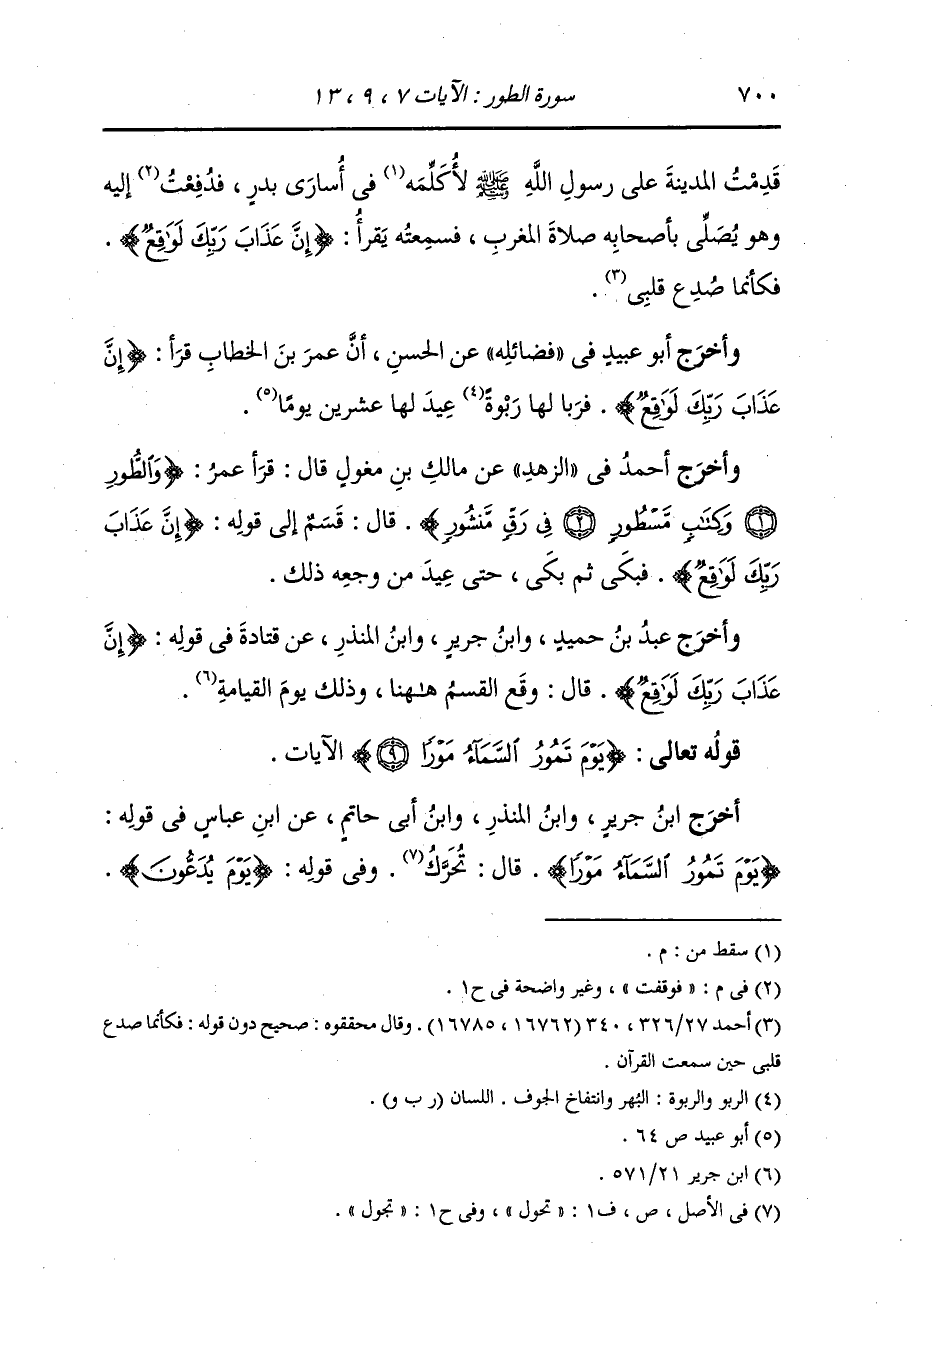 ٧٠٠ سورة الطور : الآيات ٧ ، ٩ ، ١٣
قَدِمْتُ المدينةَ على رسولِ اللَّهِ ﷺ لأُكَلِّمَه(١) فى أُسارَى بدرٍ ، فدُفِعْتُ(٢) إليه
وهو يُصَلِّى بأصحابِه صلاةَ المغربِ ، فسمِعتُه يَقرأُ : ﴿إِنَّ عَذَابَ رَبِّكَ لَوَٰقِعٌ﴾ .
فكأنما صُدِع قلبِى(٣) .
وأخرَج أبو عبيدٍ فى «فضائلِه» عن الحسنِ ، أنَّ عمرَ بنَ الخطابِ قرَأ : ﴿إِنَّ
عَذَابَ رَبِّكَ لَوَٰقِعٌ﴾ . فرَبا لها رَبْوةً(٤) عِيدَ لها عشرين يومًا(٥) .
وأخرَج أحمدُ فى «الزهدِ» عن مالكِ بنِ مغولٍ قال : قرَأ عمرُ : ﴿وَٱلطُّورِ
﴿١﴾ وَكِتَٰبٍ مَّسْطُورٍ ﴿٢﴾ فِى رَقٍّ مَّنشُورٍ﴾ . قال : قَسَمٌ إلى قولِه : ﴿إِنَّ عَذَابَ
رَبِّكَ لَوَٰقِعٌ﴾ . فبكَى ثم بكَى ، حتى عِيدَ من وجعِه ذلك .
وأخرَج عبدُ بنُ حميدٍ ، وابنُ جريرٍ ، وابنُ المنذرِ ، عن قتادةَ فى قولِه : ﴿إِنَّ
عَذَابَ رَبِّكَ لَوَٰقِعٌ﴾ . قال : وقَع القسمُ هـٰهنا ، وذلك يومَ القيامةِ(٦) .
قولُه تعالى : ﴿يَوْمَ تَمُورُ ٱلسَّمَآءُ مَوْرًا ﴿٩﴾﴾ الآيات .
أخرَج ابنُ جريرٍ ، وابنُ المنذرِ ، وابنُ أبى حاتمٍ ، عن ابنِ عباسٍ فى قولِه :
﴿يَوْمَ تَمُورُ ٱلسَّمَآءُ مَوْرًا﴾ . قال : تُحَرَّكُ(٧) . وفى قولِه : ﴿يَوْمَ يُدَعُّونَ﴾ .
(١) سقط من : م .
(٢) فى م : « فوقفت » ، وغير واضحة فى ح١ .
(٣) أحمد ٣٢٦/٢٧ ، ٣٤٠ (١٦٧٦٢ ، ١٦٧٨٥) . وقال محققوه : صحيح دون قوله : فكأنما صدع
قلبى حين سمعت القرآن .
(٤) الربو والربوة : البُهر وانتفاخ الجوف . اللسان (ر ب و) .
(٥) أبو عبيد ص ٦٤ .
(٦) ابن جرير ٥٧١/٢١ .
(٧) فى الأصل ، ص ، ف١ : « تحول » ، وفى ح١ : « تجول » .